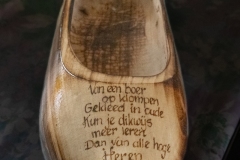 Van een boer
op klompen
Gekleed in oude
Kun je dikwijls
meer leren
Dan van alle hoge
Heren